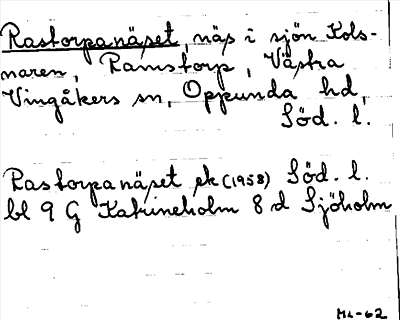 Rastorpanäset, näs i sjön Kols-
maren, Ramstorp, Västra
Vingåkers sn, Oppunda hd,
Söd. l.
Rastorpanäset ek (1958) Söd. l.
bl 9 G Katrineholm 8 d Sjöholm
ML-62